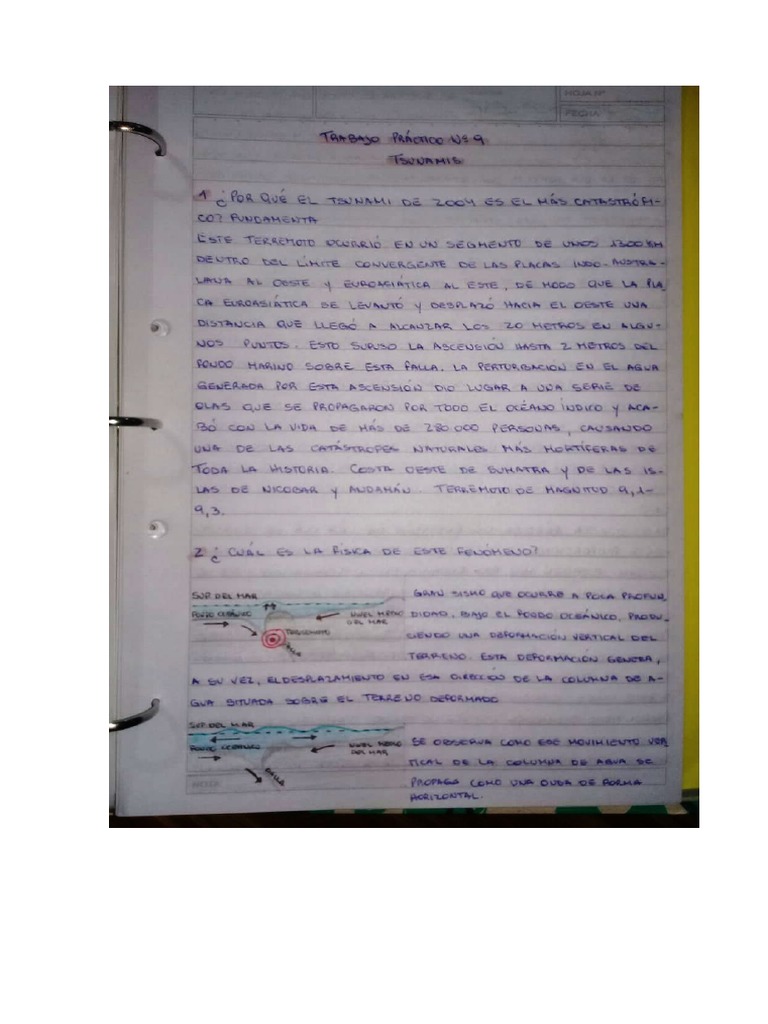 HOJA Nº
FECHA
TRABAJO PRÁCTICO Nº 9
TSUNAMIS
1 ¿POR QUÉ EL TSUNAMI DE 2004 ES EL MÁS CATASTRÓFI-
CO? FUNDAMENTA
ESTE TERREMOTO OCURRIÓ EN UN SEGMENTO DE UNOS 1300 KM
DENTRO DEL LÍMITE CONVERGENTE DE LAS PLACAS INDO-AUSTRA-
LIANA AL OESTE Y EUROASIÁTICA AL ESTE, DE MODO QUE LA PLA
CA EUROASIÁTICA SE LEVANTÓ Y DESPLAZÓ HACIA EL OESTE UNA
DISTANCIA QUE LLEGÓ A ALCANZAR LOS 20 METROS EN ALGU-
NOS PUNTOS. ESTO SUPUSO LA ASCENSIÓN HASTA 2 METROS DEL
FONDO MARINO SOBRE ESTA FALLA. LA PERTURBACIÓN EN EL AGUA
GENERADA POR ESTA ASCENSIÓN DIO LUGAR A UNA SERIE DE
OLAS QUE SE PROPAGARON POR TODO EL OCÉANO ÍNDICO Y ACA-
BÓ CON LA VIDA DE MÁS DE 280.000 PERSONAS, CAUSANDO
UNA DE LAS CATÁSTROFES NATURALES MÁS MORTÍFERAS DE
TODA LA HISTORIA. COSTA OESTE DE SUMATRA Y DE LAS IS-
LAS DE NICOBAR Y ANDAMÁN. TERREMOTO DE MAGNITUD 9,1-
9,3.
2 ¿CUÁL ES LA FÍSICA DE ESTE FENÓMENO?
SUP. DEL MAR
FONDO OCEÁNICO
NIVEL MEDIO
DEL MAR
TERREMOTO
FALLA
GRAN SISMO QUE OCURRE A POCA PROFUN
DIDAD, BAJO EL FONDO OCEÁNICO, PRODU-
CIENDO UNA DEFORMACIÓN VERTICAL DEL
TERRENO. ESTA DEFORMACIÓN GENERA,
A SU VEZ, EL DESPLAZAMIENTO EN ESA DIRECCIÓN DE LA COLUMNA DE A-
GUA SITUADA SOBRE EL TERRENO DEFORMADO
SUP. DEL MAR
FONDO OCEÁNICO
NIVEL MEDIO
DEL MAR
FALLA
SE OBSERVA COMO ESE MOVIMIENTO VER
TICAL DE LA COLUMNA DE AGUA SE
PROPAGA COMO UNA ONDA DE FORMA
HORIZONTAL.